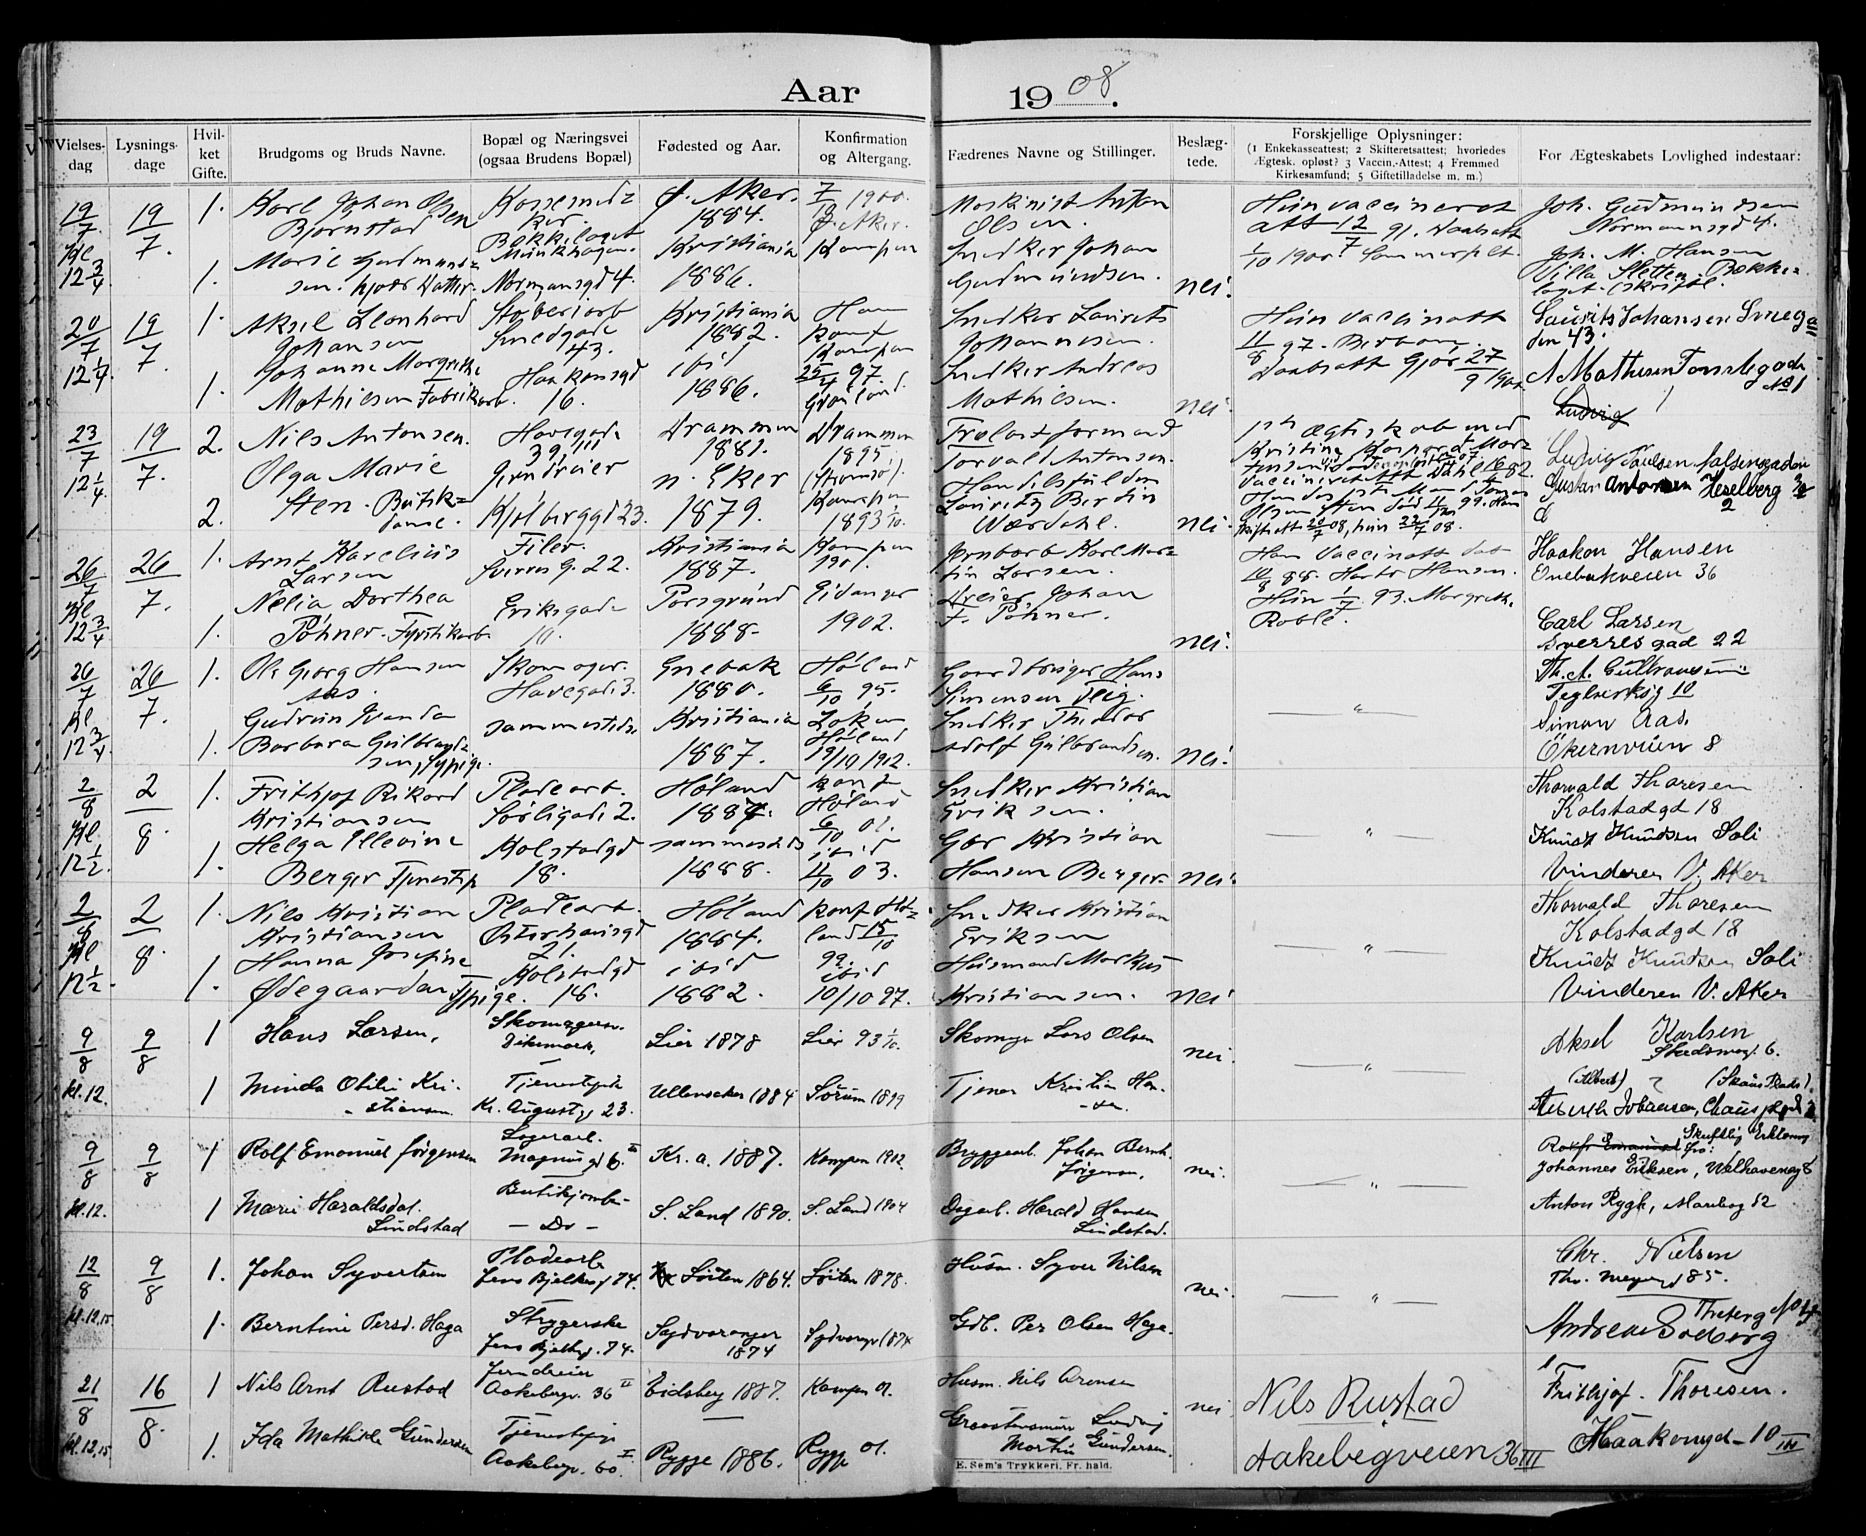 Aar 1908.
Vielses-dag
Lysnings-dage
Hvil-ket Gifte.
Brudgoms og Bruds Navne.
Bopæl og Næringsvei (ogsaa Brudens Bopæl)
Fødested og Aar.
Konfirmation og Altergang.
Fædrenes Navne og Stillinger.
Beslæg-tede.
Forskjellige Oplysninger:
(1 Enkekasseattest; 2 Skifteretsattest; hvorledes
Ægtesk. opløst? 3 Vaccin.-Attest; 4 Fremmed
Kirkesamfund; 5 Giftetilladelse m. m.)
For Ægteskabets Lovlighed indestaar:
19/7 Kl 12 3/4
19/7.
1.
Karl Johan Olsen
Bjørnstad
Ø. Aker.
1884.
7/10 1900.
Ø. Aker
Maskinist Anton
Olsen.
Hun vaccineret
att 12/7 91.
Joh. Gudmundsen
Normannsgd 4.
1.
Marie Gudmund-
sen. hjv. Datter.
Normansgd 4.
Kristiania
1886.
Kampen
Snedker Johan
Gudmundsen.
nei.
1/10 1900.
Joh. M. Hansen
Villa Sletten. Bække-
laget. (skriftl.
20/7 12 1/4
19/7
1.
Aksel Leonhard
Johansen
Støberiarb
Smedgade
43.
Kristiania
1882.
Ham
konf
Kampen
Snedker Laurits
Johannesen.
Hun vaccinatt
11/8 97.
Laurits Johansen Smega
den 43.
1.
Johanne Margrethe
Mathiesen Fabrikarb.
Haakonsgd
16.
ibid
1886.
25/4 97.
Grønland.
Snedker Andreas
Mathiesen.
nei.
27/9 1900
A Mathiesen Tøns
No 1
Ludvig
23/7 12 1/4
19/7.
2.
Nils Antonsen.
Havegade
39, III
Jerndreier
Drammen
1881.
Drammen
1895
(Strømsø).
Formand
Torvald Antonsen.
1ste Ægteskab med
Kristine
Ludvig Paulsen
2.
Olga Marie
Sten. Butik-
dame.
Kjølberggd 23.
n. Eker
1879.
Kampen
1893 1/10.
Handelsfuldm
Lauritz Berntin
Værdahl.
nei.
Skifteatt 20/7 08, hun 23/7 08.
Gustav Antonsen Heselberg
26/7 Kl 12 3/4
26/7.
1.
Arnt Karelius
Larsen
Filer.
Sverres G. 22.
Kristiania
1887.
Kampen
1901.
Jernbarb Karl Mar-
tin Larsen.
Ham Vaccinatt dat
10/8 88. Harto Hansen.
Haakon Hansen
Enebakveien 36
1.
Nelia Dorthea
Pöhner. Fyrstikarb
Eriksgade
10.
Porsgrund
1888.
Eidanger
1902.
Dreier Johan
F. Pöhner.
nei.
Hun 1/7 93. Margrethe
Roble.
Carl Larsen
Sverresgad 22
26/7 Kl 12 3/4
26/7.
1.
Ole Georg Hansen
Aas.
Skomager.
Havegade 3.
Enebak
1880.
Høland
6/10 95.
Gaardbruger Hans
Simensen Flig.
— " —
Th. A. Gulbrandsen
Teglverksg 10
1.
Gudrun Wanda
Barbara Gulbrand-
sen, Sypige.
sammesteds.
Kristiania
1887.
Løken
Høland
19/10 1902.
Snedker Theodor
Adolf Gulbrandsen.
nei.
Simon Aas.
Ökernveien 8
2/8 Kl 12 1/2
2/8.
1.
Frithjof Rikard
Kristiansen
Pladearb.
Sørligade 2.
Høland
1887.
konf
Høland
6/10 01.
Snedker Kristian
Eriksen.
— " —
Thorvald Thoresen
Kolstadgd 18
1.
Helga Illevine
Berger Tjenestep
Kolstadgd
18.
sammesteds
1888.
ibid
4/10 03.
Gbr Kristian
Hansen Berger.
nei.
Knudt Knudsen Soli
Vinderen V. Aker
2/8 Kl 12 1/2
2/8.
1.
Nils Kristian
Kristiansen
Pladearb.
Østerhausgd
21.
Høland
1884.
konf Hø-
land 15/10
99.
Snedker Kristian
Eriksen
— " —
Thorvald Thoresen
Kolstadgd 18
1.
Hanna Josefine
Ødegaarden Typige.
Kolstadgd
18.
ibid
1882.
ibid
10/10 97.
Husmand Markus
Kristiansen.
nei.
Knudt Knudsen Soli
Vinderen V. Aker
9/8 kl. 12.
9/8
1
Hans Larsen,
Skomagersv.
Dikemark,
Lier 1878
Lier 93 1/10.
Skomgr Lars Olsen
nei.
— " —
Aksel Karlsen
1
Minda Otilie Kri-
stiansen
Tjenestepike
Kr. Augustg 23.
Ullensaker 1884
Sørum 1899
Tjener Kristian Han-
sen.
(Albert)
Johansen,
9/8 kl. 12.
9/8
1
Rolf Emanuel Jørgensen
Lagerarb.
Magnusgd 6. II
Kr.a. 1887.
Kampen 1902.
Bryggearb. Johan Bernh.
Jørgensen.
nei.
— " —
Skriftlig Erklæring
fra:
Johannes Eriksen, Welhavensg 8
1
Marie Haraldsdat.
Lindstad
Butikjomfr.
— Do —
S. Land 1890.
S. Land 1904
Dagarb. Harald Hansen
Lindstad.
Anton Rygh, Maribog 52
12/8 kl. 12,15
9/8
1.
Johan Syvertsen
Pladearb
Jens Bjelkesg 74.
Løiten 1864.
Løiten 1878.
Husm. Syver Nilsen
nei.
— " —
Chr. Nielsen
Th. Meyersgd 85.
1.
Berntine Persd. Haga
Strygerske
Jens Bjelkesg. 74.
Sydvaranger
1874
Gdb. Per Olsen Haga.
Andreas Soeborg
21/8 kl. 12,15
16/8.
1
Nils Arnt Rustad
Jerndreier
Aakebergv. 36 II
Eidsberg 1887.
Kampen 01.
Husm. Nils Arensen
nei.
Nils Rustad
Aakebegveien 36 III
Frithjof Thoresen.
Haakonsgd. 10 III
1.
Ida Mathilde Gundersen
Tjenestepige
Aakebergv. 60. I
Rygge 1886.
Rygge 01.
Graastensmurer Ludvig
Martin Gundersen.
E. Sem's Trykkeri. Fr. hald.